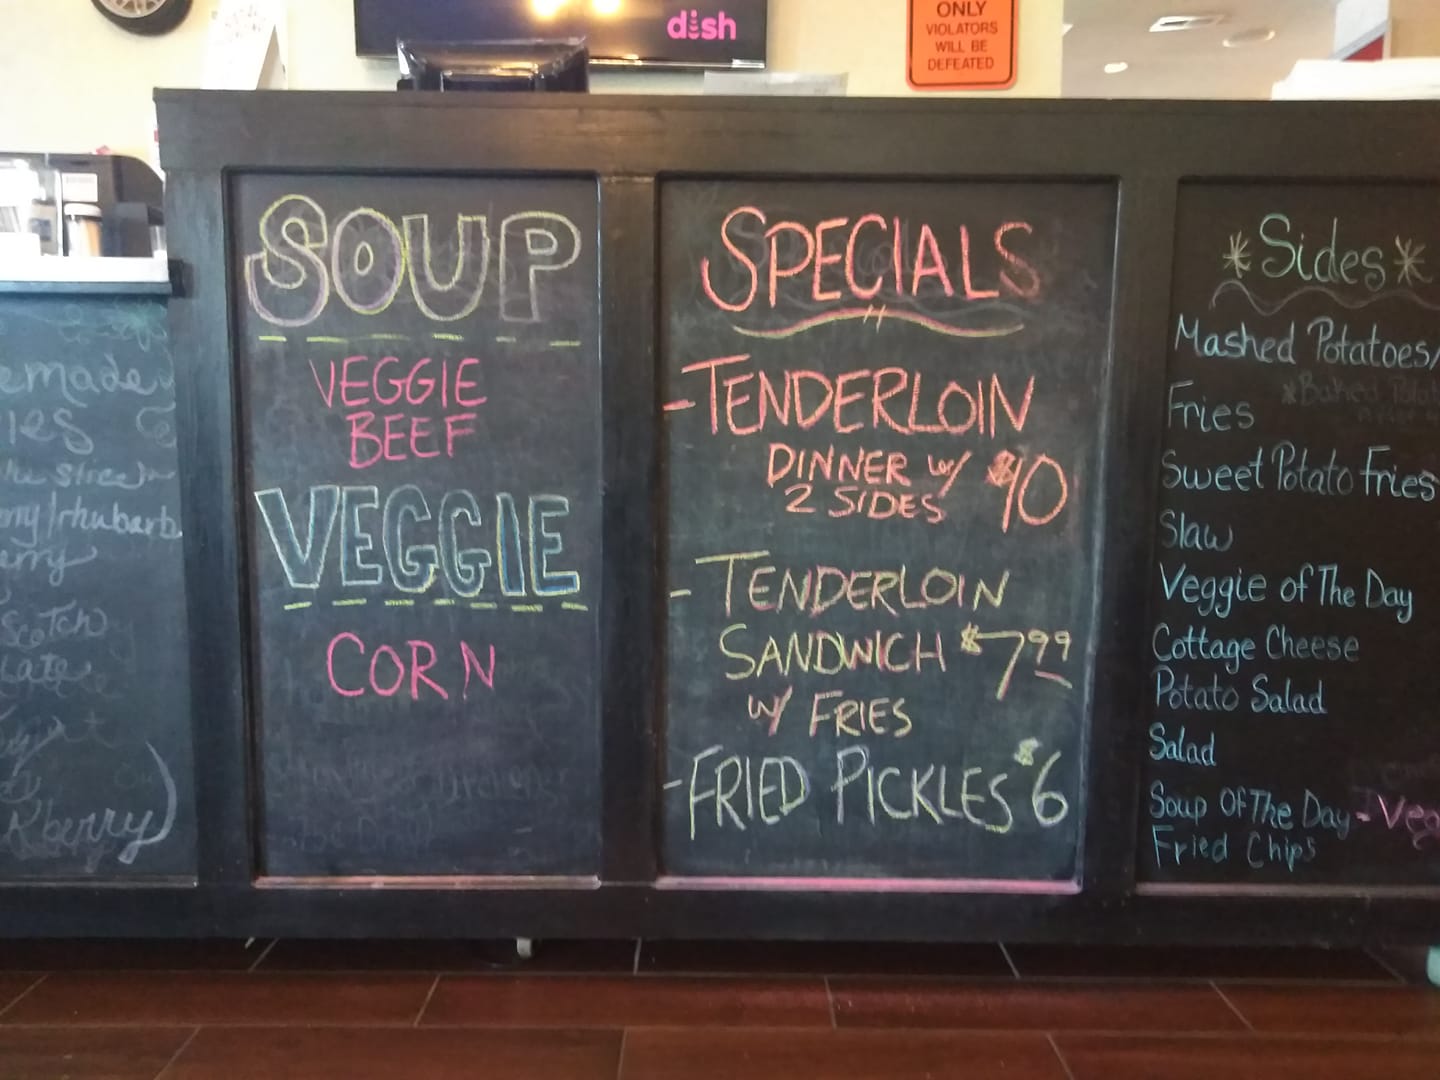 dish
ONLY
VIOLATORS
WILL BE
DEFEATED
SOUP
VEGGIE
BEEF
VEGGIE
CORN
SPECIALS
- TENDERLOIN
DINNER w/ $10
2 SIDES
- TENDERLOIN
SANDWICH $7.99
w/ FRIES
- FRIED PICKLES $6
* Sides *
Mashed Potatoes/
Fries
Sweet Potato Fries
Slaw
Veggie of The Day
Cottage Cheese
Potato Salad
Salad
Soup Of The Day - Veg
Fried Chips
emade
ies
slice
rhubarb
erry
Scotch
Kberry)